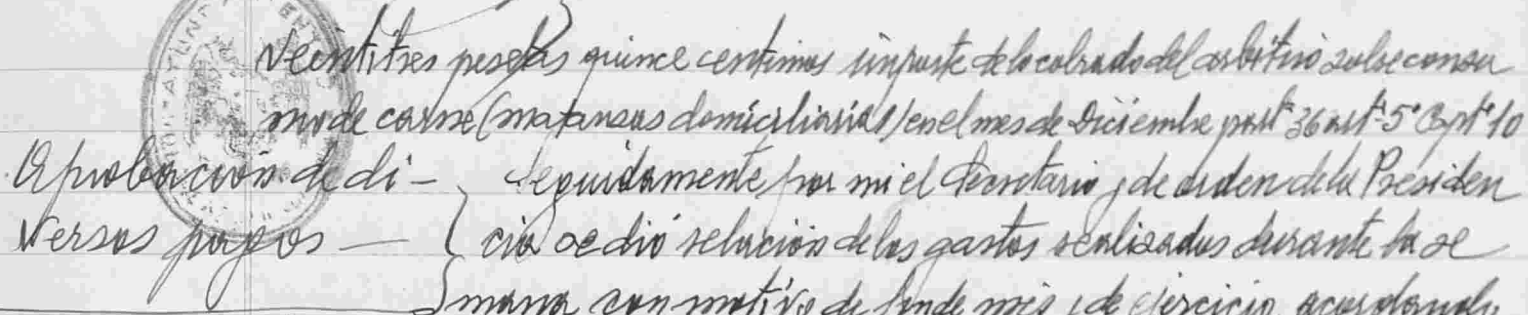 veintitres pesetas quince centimos importe de lo cobrado del arbitrio sobre consu
mo de carne (matanzas domiciliarias) en el mes de Diciembre partª 36 artº 5º Cptº 10
Aprobación de di- Seguidamente por mi el Secretario, de orden de la Presiden
versos pagos — cia se dió relación de los gastos realizados durante la se
mana con motivo de fin de mes, de ejercicio, acordando